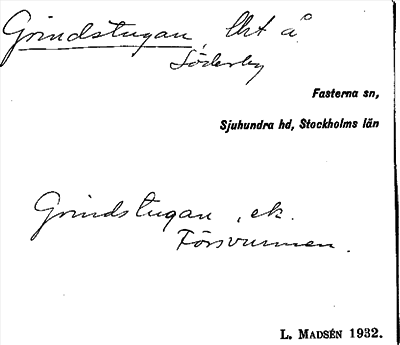 Grindstugan, lht å
Söderby
Fasterna sn,
Sjuhundra hd, Stockholms län
Grindstugan, ek.
Försvunnen.
L. MADSÉN 1932.